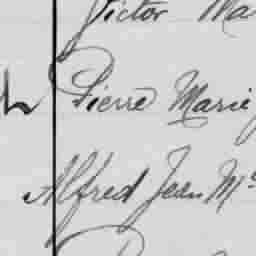 Victor Ma
Pierre Marie
Alfred Jean M